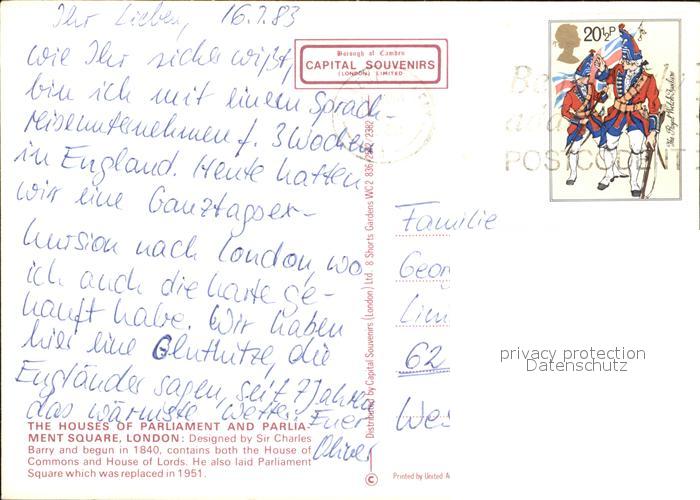 Ihr Lieben, 16.7.83
wie Ihr sicher wißt,
bin ich mit einem Sprach-
reisenunternehmen f. 3 Wochen
in England. Heute hatten
wir eine Ganztagser-
kursion nach London, wo
ich auch die Karte ge-
kauft habe. Wir haben
hier eine Gluthitze, die
Engländer sagen, seit 7 Jahren
das wärmste Wetter. Euer
Oliver
THE HOUSES OF PARLIAMENT AND PARLIA-
MENT SQUARE, LONDON: Designed by Sir Charles
Barry and begun in 1840, contains both the House of
Commons and House of Lords. He also laid Parliament
Square which was replaced in 1951.
Borough of Camden
CAPITAL SOUVENIRS
(LONDON) LIMITED
Distributed by Capital Souvenirs (London) Ltd. 8 Shorts Gardens WC2 836/2382
©
Printed by United A
20½P
The Royal Welch Fusiliers
POSTCODE IT
Familie
Geor
62
Wes
privacy protection
Datenschutz